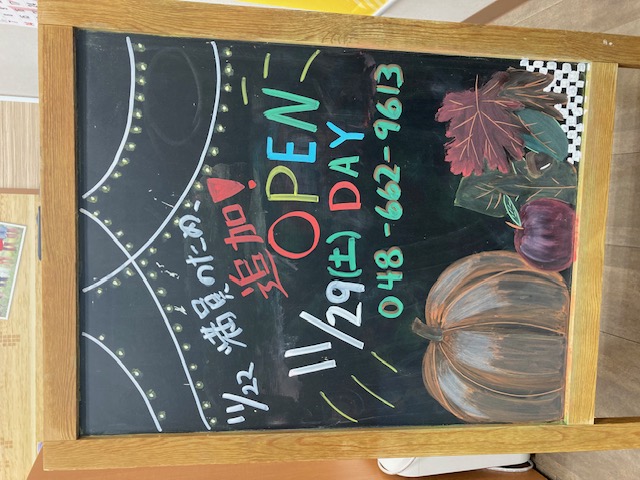 11/22 満員のため、
追加!
OPEN
11/29(土) DAY
048-662-9613